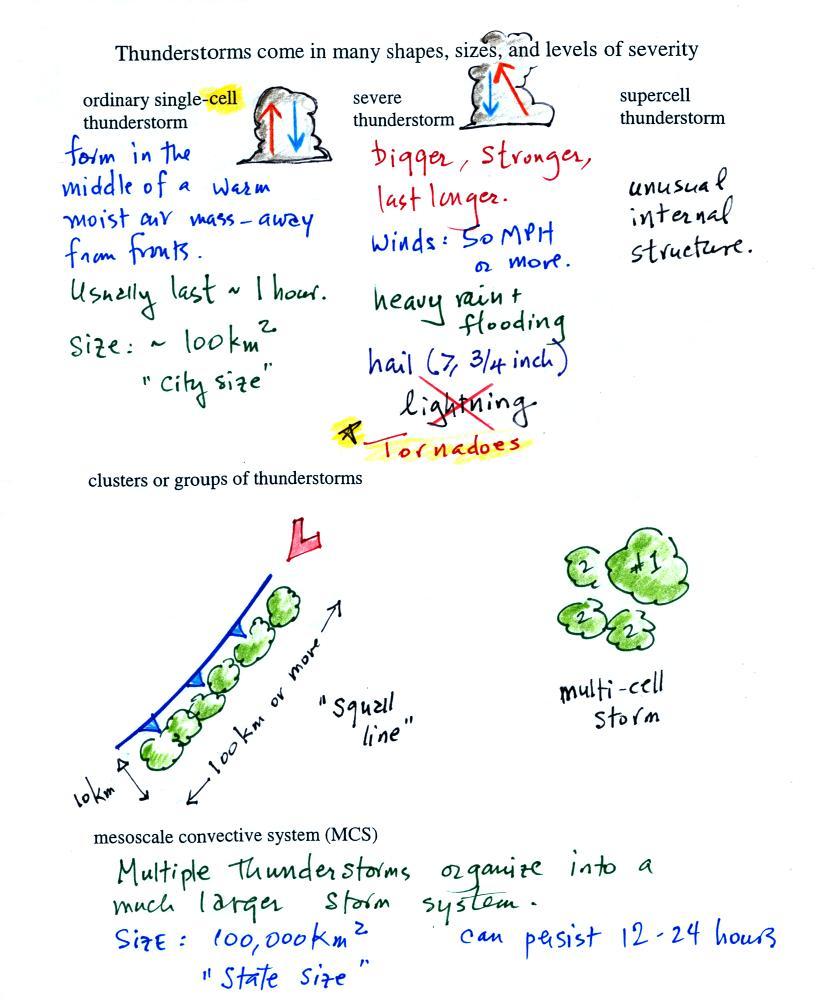 Thunderstorms come in many shapes, sizes, and levels of severity
ordinary single-cell
thunderstorm
form in the
middle of a warm
moist air mass - away
from fronts.
Usually last ~ 1 hour.
Size: ~ 100 km²
"City size"
severe
thunderstorm
bigger, stronger,
last longer.
Winds: 50 MPH
or more.
heavy rain +
flooding
hail (≥ 3/4 inch)
lightning
Tornadoes
supercell
thunderstorm
unusual
internal
structure.
clusters or groups of thunderstorms
L
100 km or more
10 km
"Squall
line"
2
#1
2
2
multi-cell
storm
mesoscale convective system (MCS)
Multiple thunderstorms organize into a
much larger storm system.
SizE: 100,000 km²
"State size"
can persist 12-24 hours